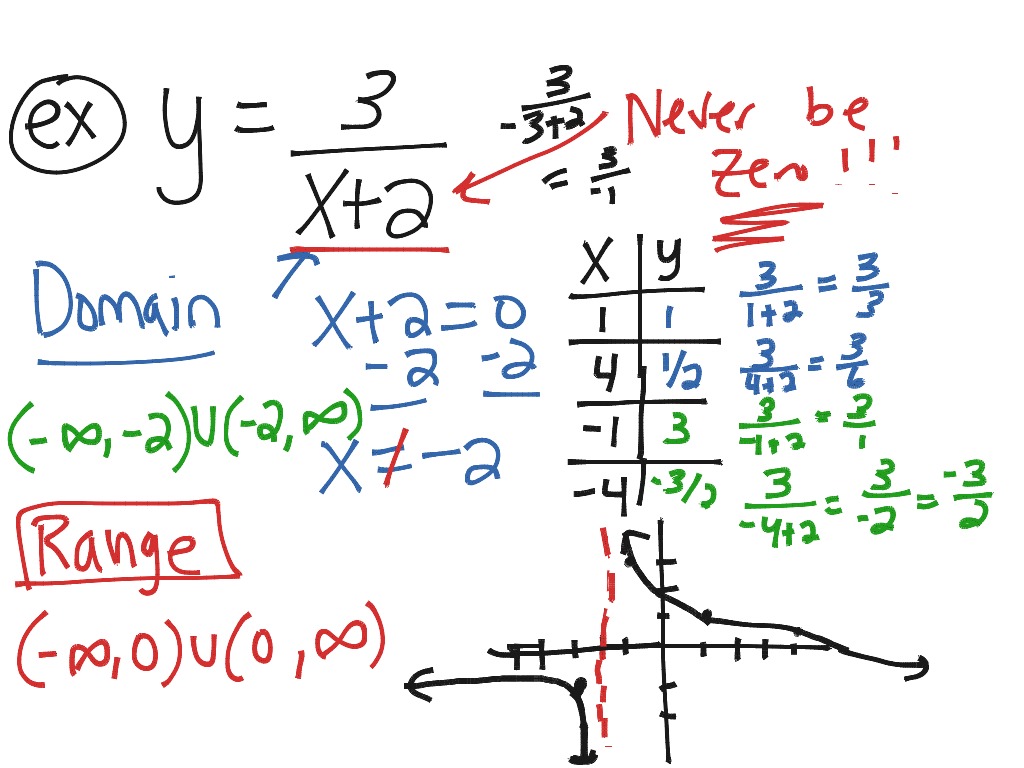 ex y = 3/(x+2)
3/(-3+2) = 3/-1
Never be
Zero !!!
Domain
x+2=0
-2 -2
x≠-2
(-∞,-2)∪(-2,∞)
Range
(-∞,0)∪(0,∞)
x y
1 1
4 1/2
-1 3
-4 -3/2
3/(1+2) = 3/3
3/(4+2) = 3/6
3/(-1+2) = 3/1
3/(-4+2) = 3/-2 = -3/2